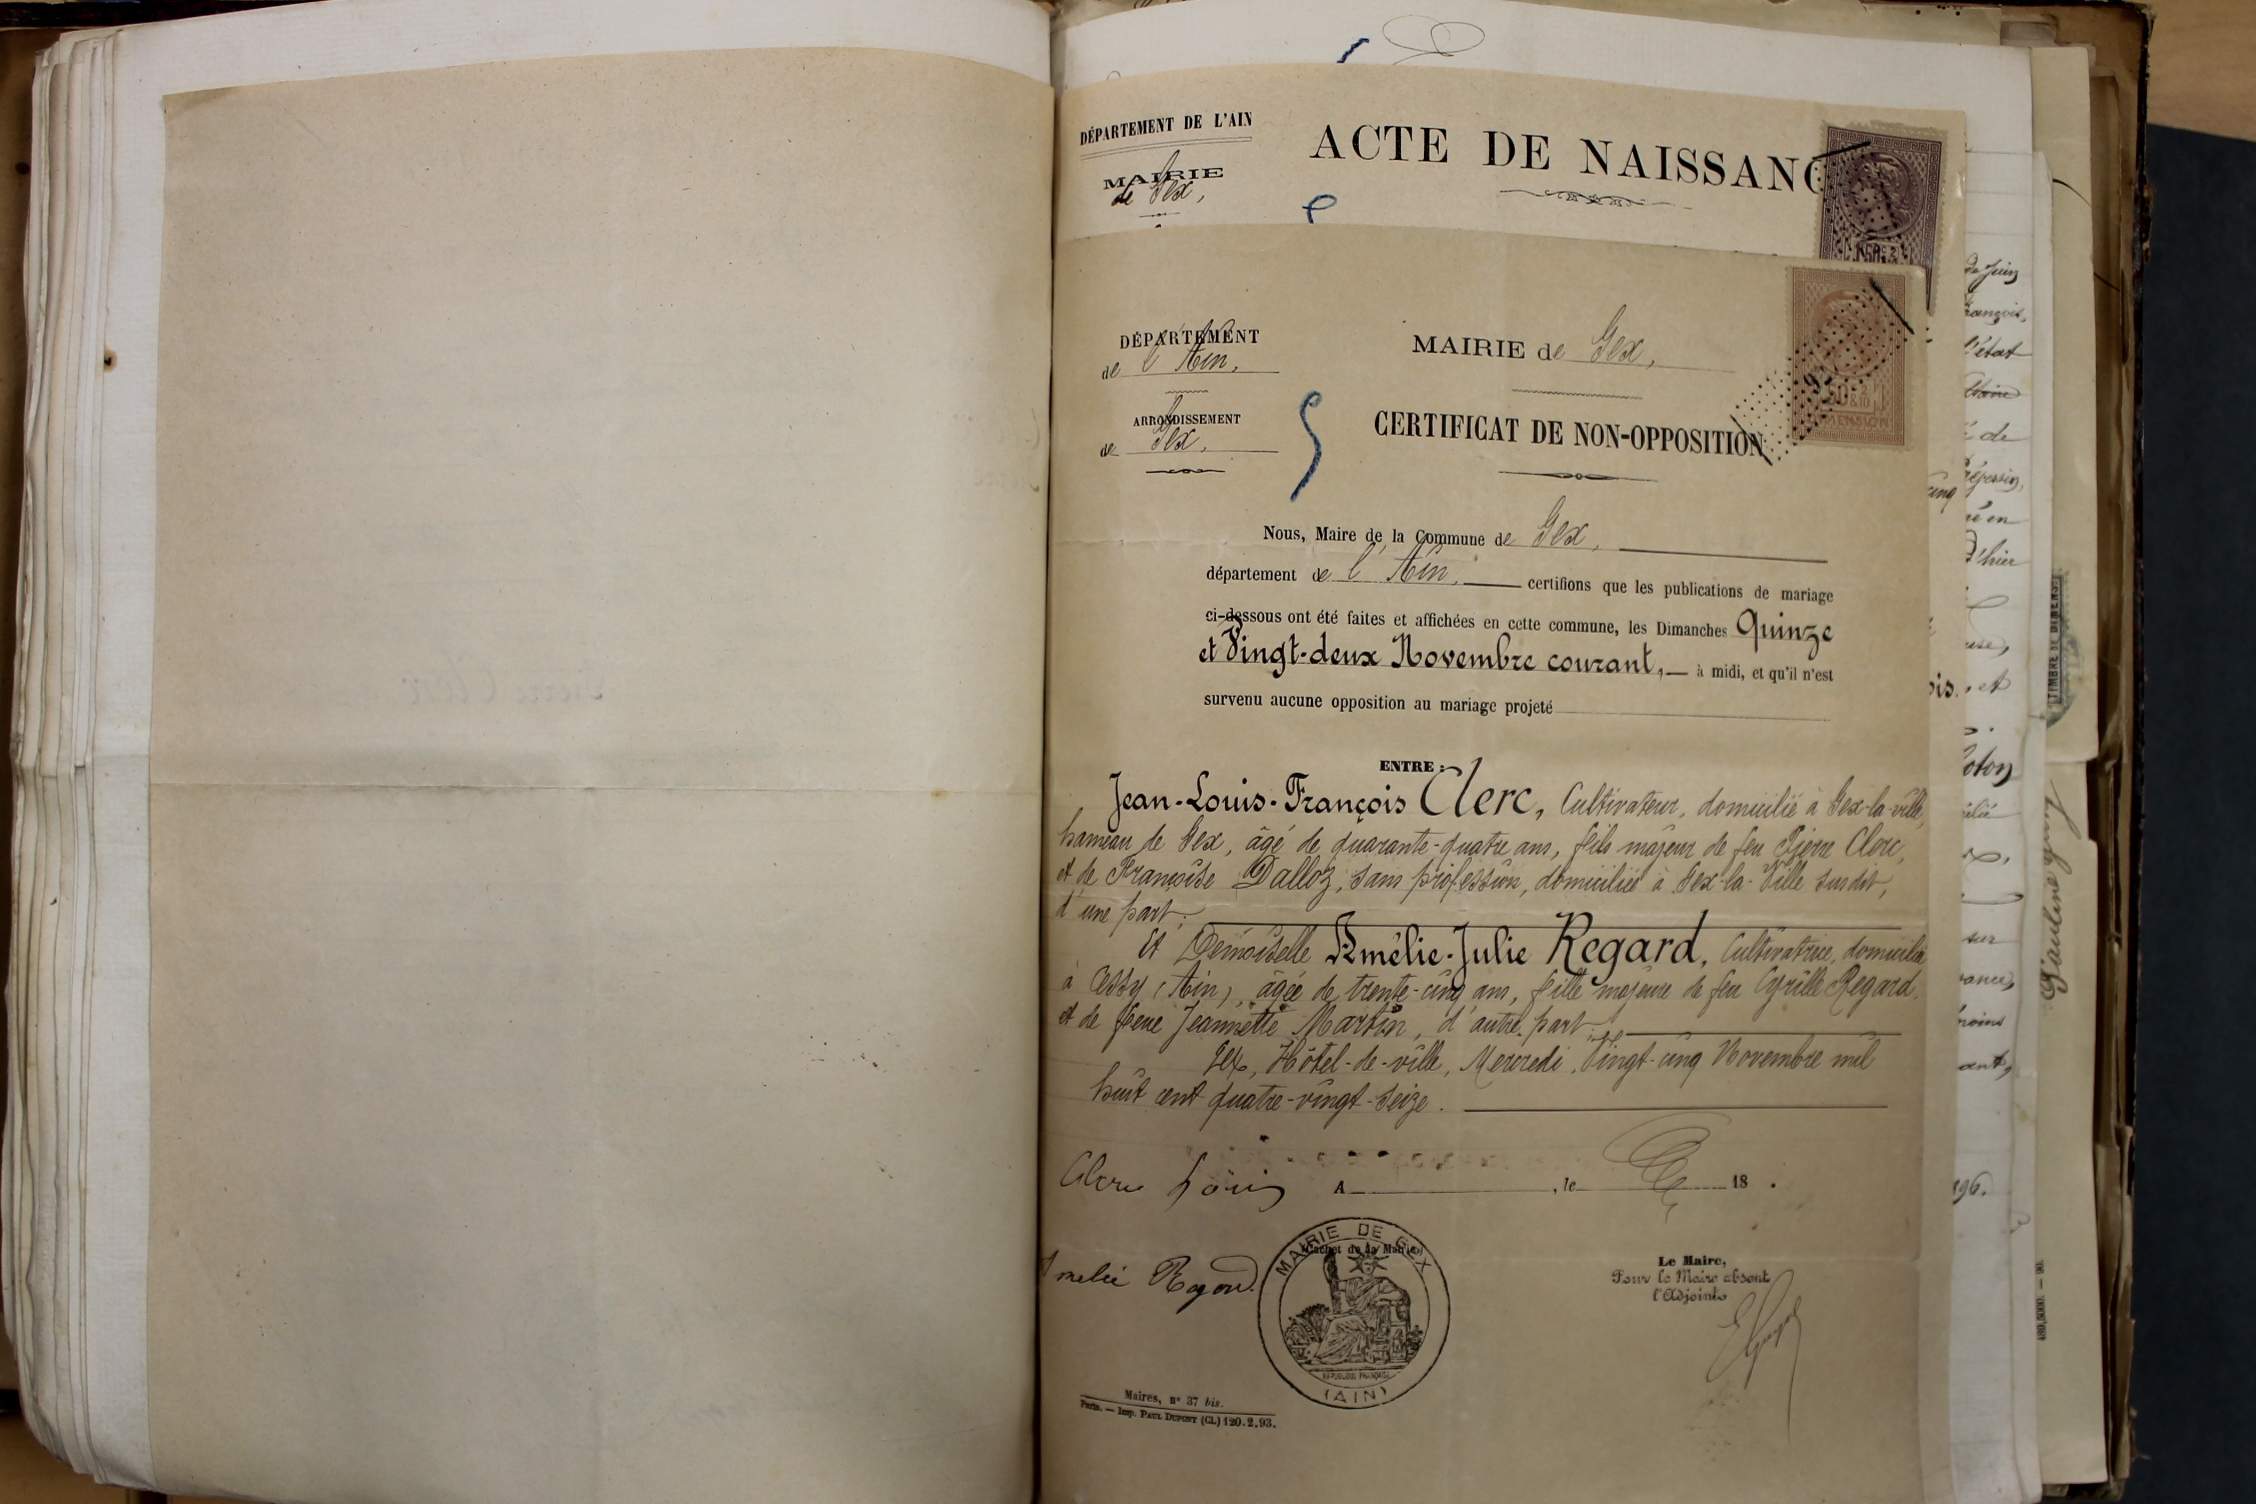 DÉPARTEMENT DE L'AIN
MAIRIE
de Gex,
ACTE DE NAISSANC
DÉPARTEMENT
de l'Ain,
ARRONDISSEMENT
de Gex,
MAIRIE de Gex,
CERTIFICAT DE NON-OPPOSITION
Nous, Maire de la Commune de Gex,
département de l'Ain, certifions que les publications de mariage
ci-dessous ont été faites et affichées en cette commune, les Dimanches Quinze
et Vingt-deux Novembre courant, à midi, et qu'il n'est
survenu aucune opposition au mariage projeté
ENTRE :
Jean-Louis-François Clerc, Cultivateur, domicilié à Gex-la-ville,
hameau de Gex, âgé de quarante-quatre ans, fils majeur de feu Pierre Clerc,
et de Françoise Dalloz, sans profession, domiciliée à Gex-la-Ville susdit,
d'une part;
Et Demoiselle Amélie-Julie Regard, Cultivatrice, domiciliée
à Cessy (Ain), âgée de trente-cinq ans, fille majeure de feu Cyrille Regard,
et de feue Jeannette Martin, d'autre part;
Gex, Hôtel-de-ville, Mercredi, Vingt-cinq Novembre mil
huit cent quatre-vingt-seize.
Clerc Louis
A , le 18 .
MAIRIE DE GEX
(Cachet de la Mairie)
RÉPUBLIQUE FRANÇAISE
(AIN)
Amélie Regard
Le Maire,
Pour le Maire absent
l'Adjoint
Maires, n° 37 bis.
Paris. — Imp. PAUL DUPONT (CL) 120.2.93.
de Juin
l'état
de
d'hier
cinq
et
sur
TIMBRE DE DIMENS